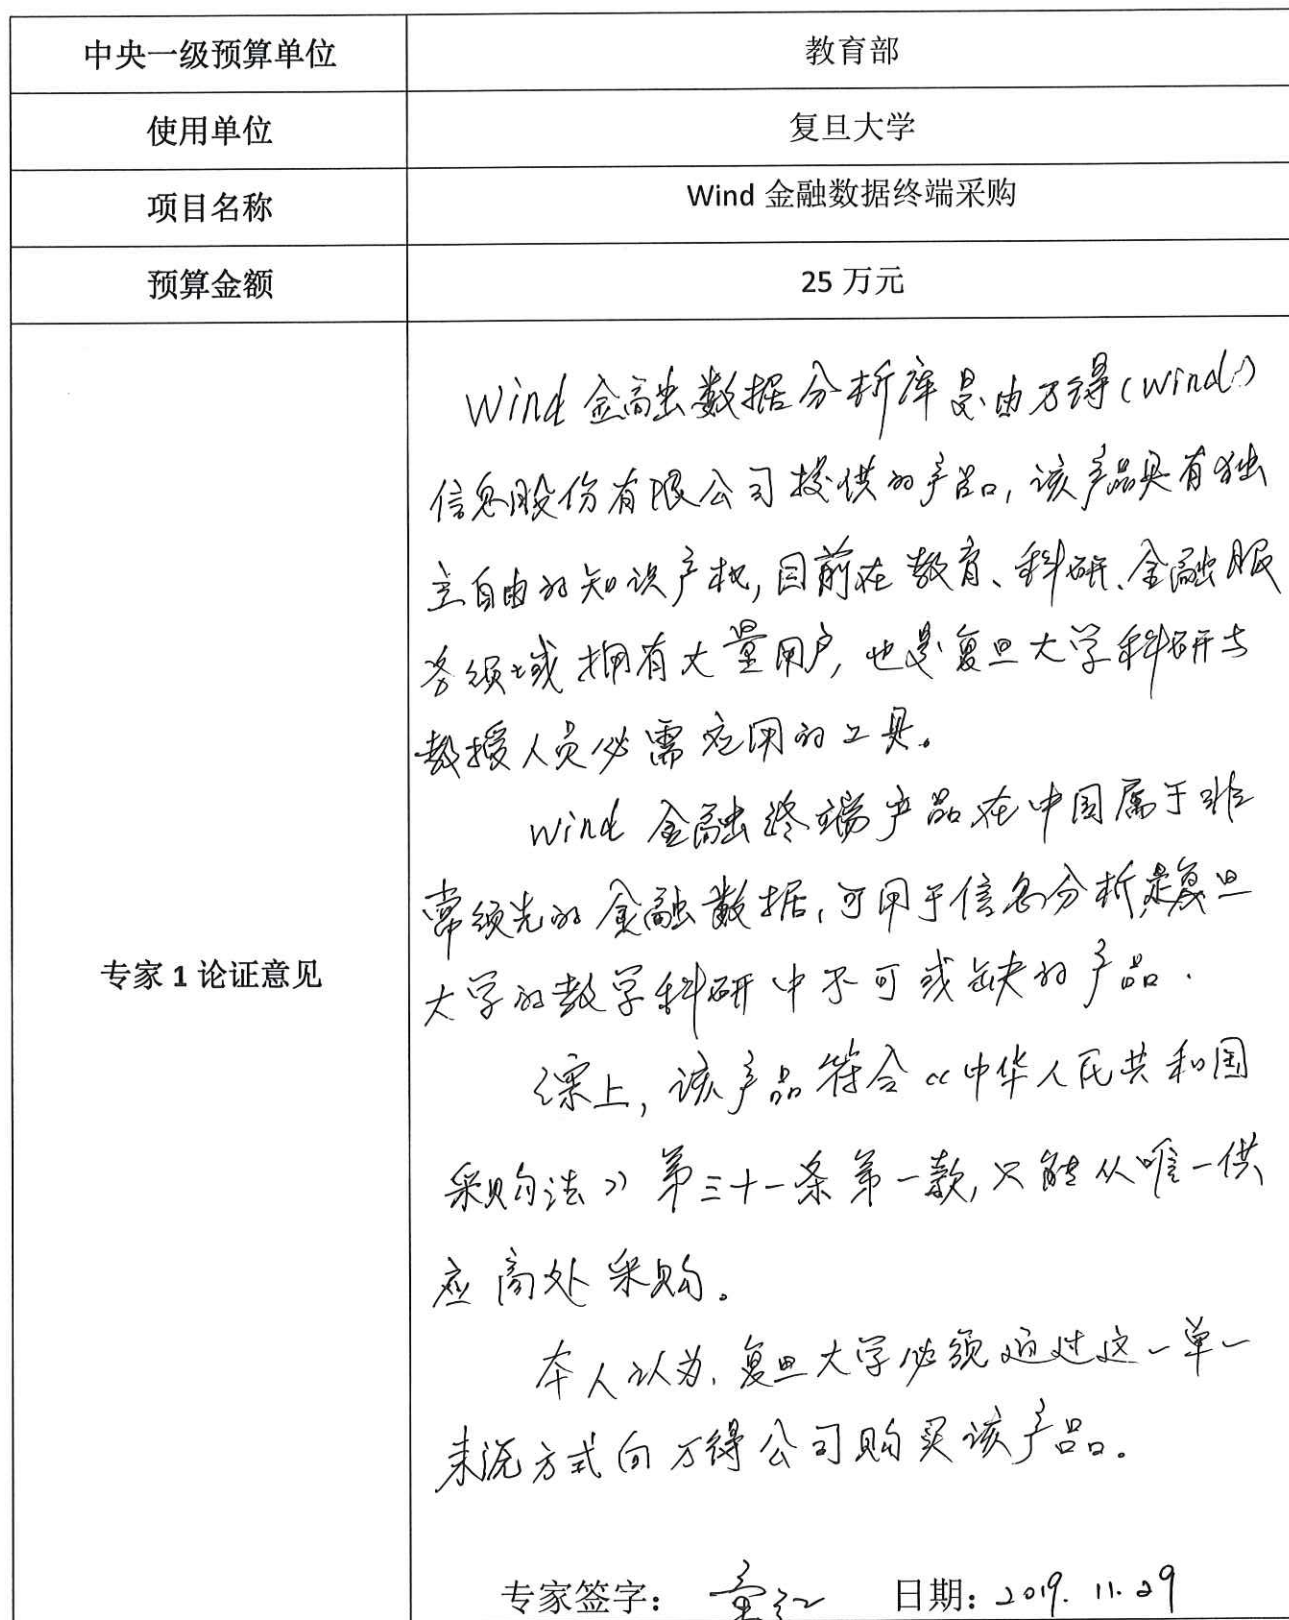 中央一级预算单位 教育部
使用单位 复旦大学
项目名称 Wind 金融数据终端采购
预算金额 25 万元
专家 1 论证意见
Wind 金融数据分析库是由万得(Wind)
信息股份有限公司提供的产品,该产品具有独
立自由的知识产权,目前在教育、科研、金融服
务领域拥有大量用户,也是复旦大学科研与
教授人员必需应用的工具。
Wind 金融终端产品在中国属于非
常领先的金融数据,可用于信息分析,是复旦
大学的教学科研中不可或缺的产品.
综上,该产品符合《中华人民共和国
采购法》第三十一条第一款,只能从唯一供
应商处采购。
本人认为,复旦大学必须通过这一单一
来源方式向万得公司购买该产品。
专家签字: 日期: 2019. 11. 29